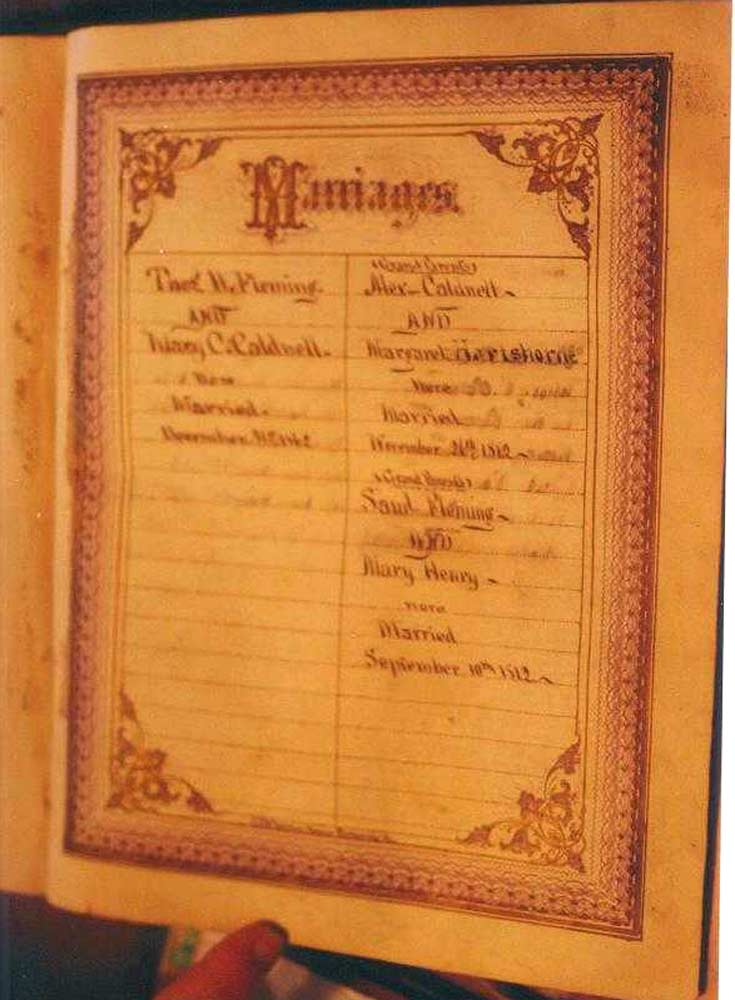 Marriages.
Thos. W. Fleming.
AND
Mary C. Caldwell.
Were
Married.
(Grand Parents)
Alex. Caldwell
AND
Margaret
Were
Married
26th 1812
(Grand Parents)
Saml. Fleming
AND
Mary Henry
were
Married
September 10th 1812